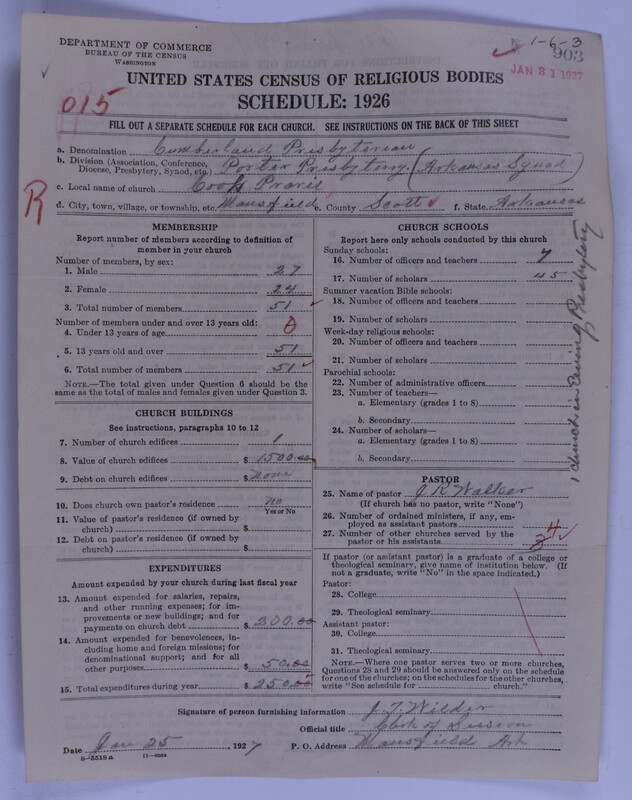 DEPARTMENT OF COMMERCE
BUREAU OF THE CENSUS
WASHINGTON
1-6-3
903
JAN 31 1927
UNITED STATES CENSUS OF RELIGIOUS BODIES
SCHEDULE: 1926
015
FILL OUT A SEPARATE SCHEDULE FOR EACH CHURCH. SEE INSTRUCTIONS ON THE BACK OF THIS SHEET
a. Denomination Cumberland Presbyterian
b. Division (Association, Conference, Diocese, Presbytery, Synod, etc.) Porter Presbytery (Arkansas Synod)
R
c. Local name of church Cooks Prarie
d. City, town, village, or township, etc. Mansfield e. County Scott f. State Arkansas
MEMBERSHIP
Report number of members according to definition of
member in your church
Number of members, by sex:
1. Male 27
2. Female 24
3. Total number of members 51
Number of members under and over 13 years old:
4. Under 13 years of age 0
5. 13 years old and over 51
6. Total number of members 51
NOTE.—The total given under Question 6 should be
same as the total of males and females given under Question 3.
CHURCH BUILDINGS
See instructions, paragraphs 10 to 12
7. Number of church edifices 1
8. Value of church edifices $ 1500.00
9. Debt on church edifices $ none
10. Does church own pastor's residence? no
Yes or No
11. Value of pastor's residence (if owned by
church) $
12. Debt on pastor's residence (if owned by
church) $
EXPENDITURES
Amount expended by your church during last fiscal year
13. Amount expended for salaries, repairs,
and other running expenses; for im-
provements or new buildings; and for
payments on church debt $ 200.00
14. Amount expended for benevolences, in-
cluding home and foreign missions; for
denominational support; and for all
other purposes $ 50.00
15. Total expenditures during year $ 250.00
CHURCH SCHOOLS
Report here only schools conducted by this church
Sunday schools:
16. Number of officers and teachers 7
17. Number of scholars 45
Summer vacation Bible schools:
18. Number of officers and teachers
19. Number of scholars
Week-day religious schools:
20. Number of officers and teachers
21. Number of scholars
Parochial schools:
22. Number of administrative officers
23. Number of teachers—
a. Elementary (grades 1 to 8)
b. Secondary
24. Number of scholars—
a. Elementary (grades 1 to 8)
b. Secondary
1 church in Ewing Presbytery
PASTOR
25. Name of pastor J R Walker
(If church has no pastor, write "None")
26. Number of ordained ministers, if any, em-
ployed as assistant pastors
27. Number of other churches served by the
pastor or his assistants 3 4
If pastor (or assistant pastor) is a graduate of a college or
theological seminary, give name of institution below. (If
not a graduate, write "No" in the space indicated.)
Pastor:
28. College
29. Theological seminary
Assistant pastor:
30. College
31. Theological seminary
NOTE.—Where one pastor serves two or more churches,
Questions 28 and 29 should be answered only on the schedule
for one of the churches; on the schedules for the other churches,
write "See schedule for church."
Signature of person furnishing information J. T. Wilder
Official title Clerk of Session
Date Jan 25, 1927 P. O. Address Mansfield Ark
8-5518a 11-9084